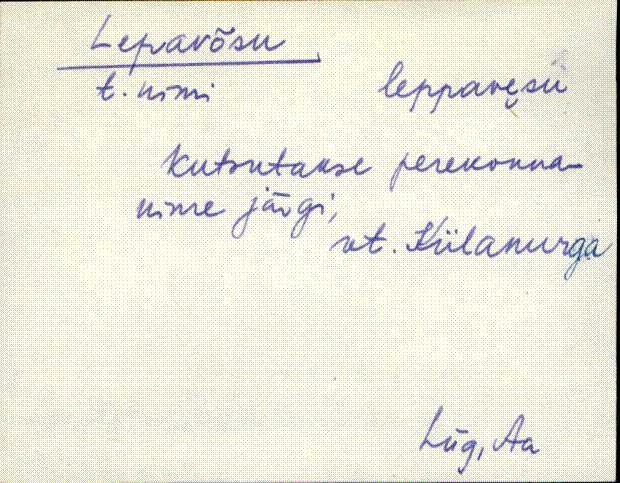 Lepavõsu
t. nimi leppavẹsu
Kutsutakse perekonna-
nime järgi,
vt. Kiilanurga
Lüg, Aa